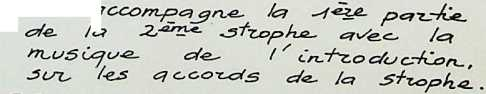 accompagne la 1ère partie
de la 2ème strophe avec la
musique de l'introduction,
sur les accords de la strophe.